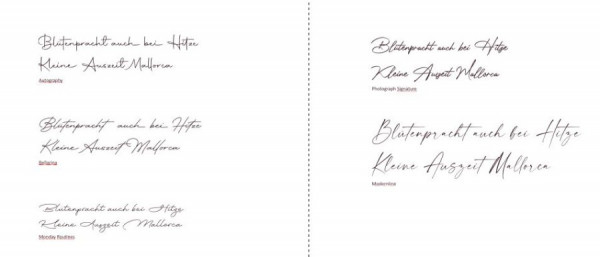 Blütenpracht auch bei Hitze
Kleine Auszeit Mallorca
Autography
Blütenpracht auch bei Hitze
Kleine Auszeit Mallorca
Blütenpracht auch bei Hitze
Kleine Auszeit Mallorca
Monday Routines
Blütenpracht auch bei Hitze
Kleine Auszeit Mallorca
Photograph Signature
Blütenpracht auch bei Hitze
Kleine Auszeit Mallorca